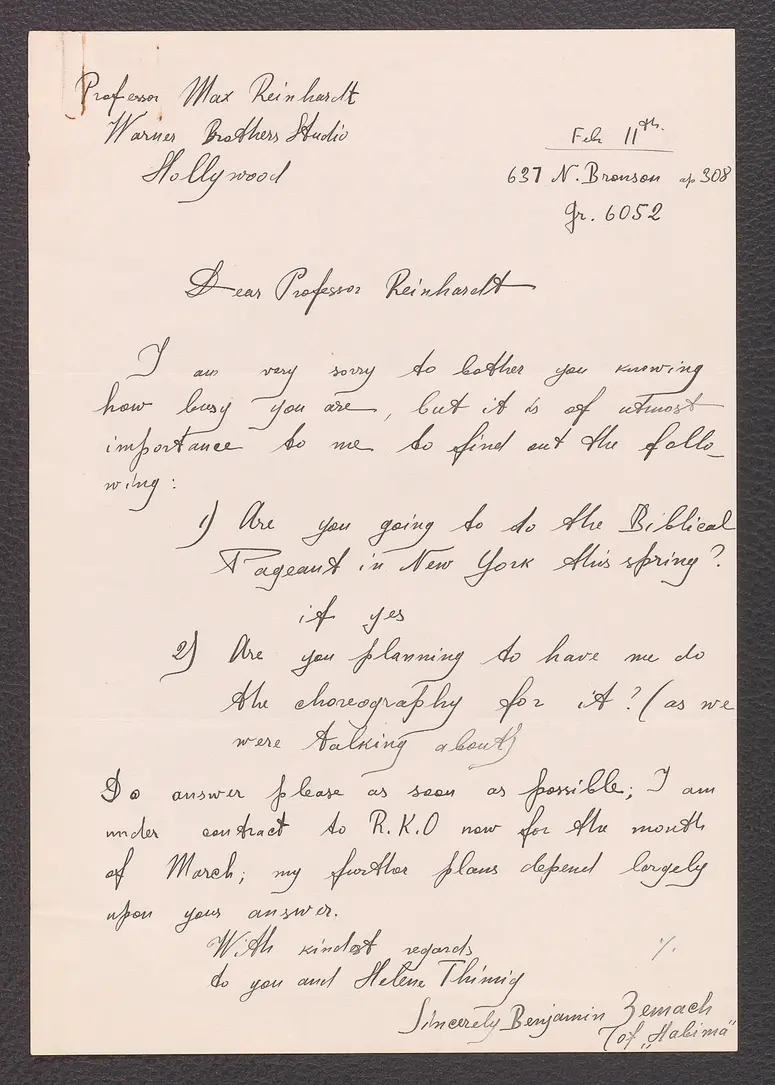 Professor Max Reinhardt
Warner Brothers Studio
Hollywood
Feb 11th.
637 N. Bronson ap 308
Gr. 6052
Dear Professor Reinhardt
I am very sorry to bother you knowing
how busy you are, but it is of utmost
importance to me to find out the follo-
wing:
1) Are you going to do the Biblical
Pageant in New York this spring?
if yes
2) Are you planning to have me do
the choreography for it? (as we
were talking about)
Do answer please as soon as possible; I am
under contract to R.K.O now for the month
of March; my further plans depend largely
upon your answer.
With kindest regards
to you and Helene Thimig
%.
Sincerely Benjamin Zemach
(of „Habima"